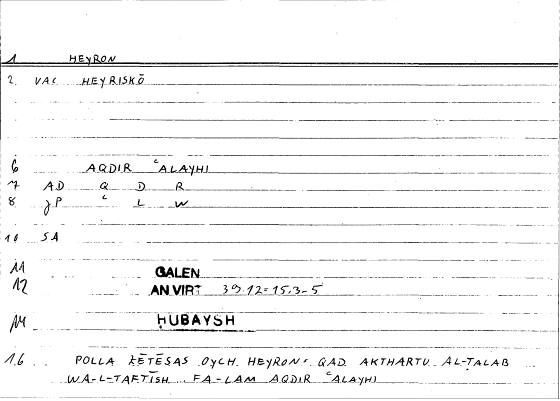 1 HEYRON
2. VAC HEYRISKŌ
6 AQDIR ʿALAYHI
7 AD Q D R
8 JP ʿ L W
10 SA
11 GALEN
12 AN VIRT 39.12=15.3-5
14 ḤUBAYSH
16 POLLA ZĒTĒSAS OYCH HEYRON: QAD AKTHARTU AL-TALAB
WA-L-TAFTĪSH FA-LAM AQDIR ʿALAYHI